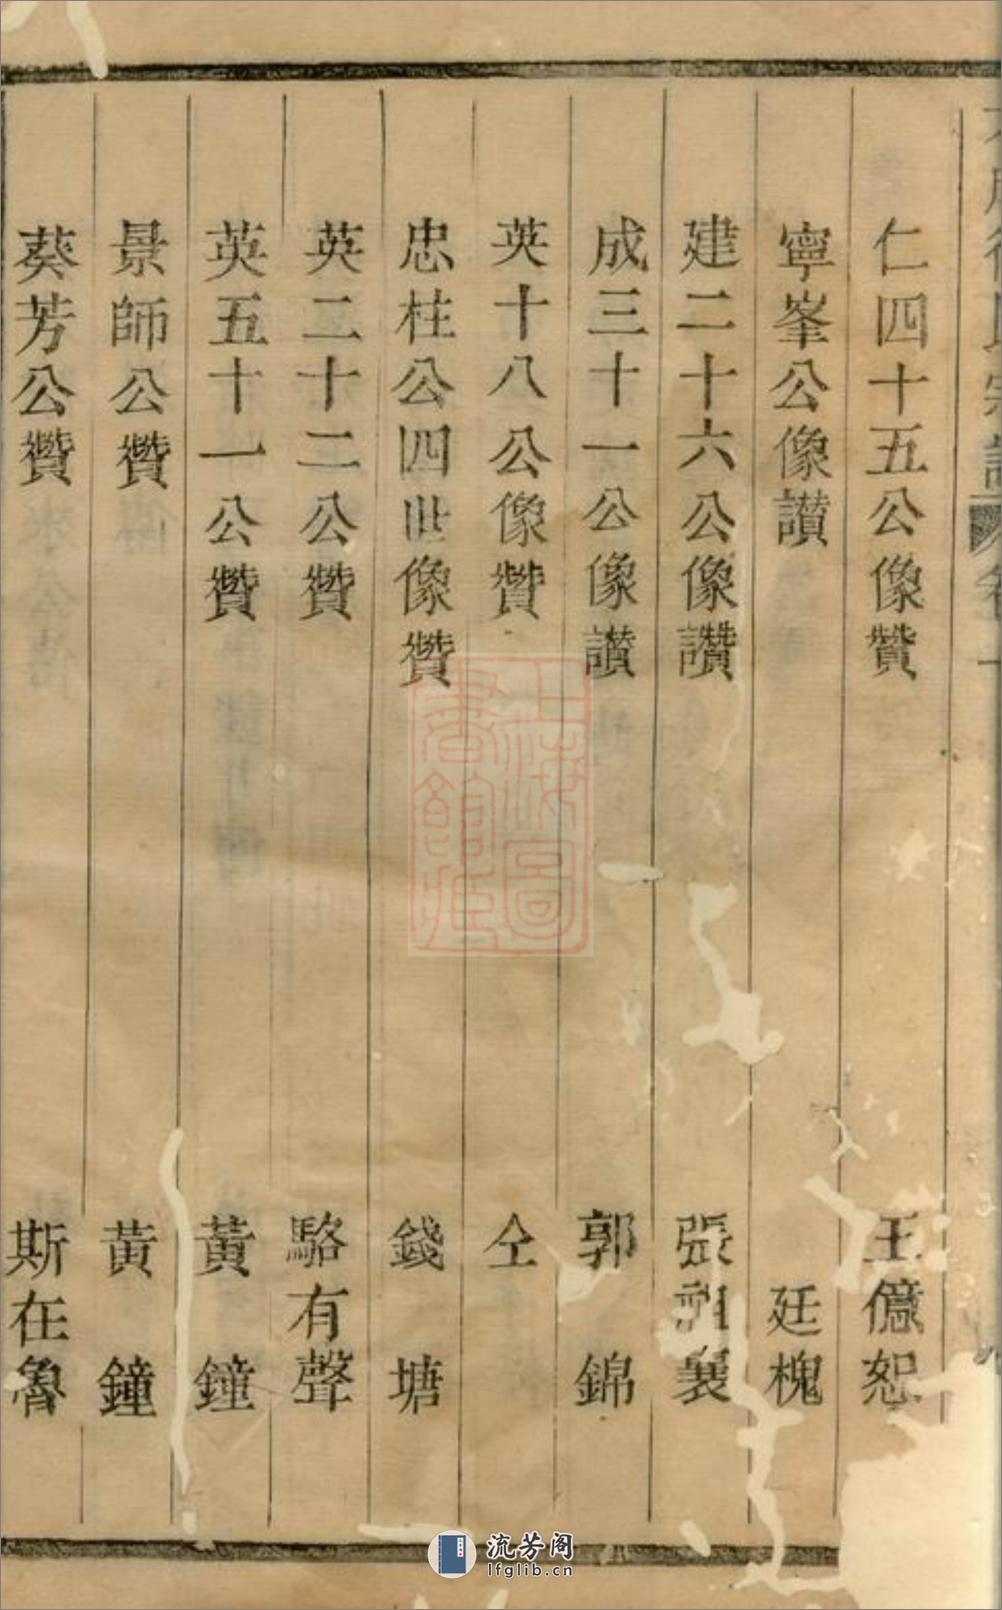 仁四十五公像贊 王億恕
寧峯公像讃 廷槐
建二十六公像讚 張 襄
成三十一公像讃 郭錦
英十八公像贊 仝
忠柱公四世像贊 錢塘
英二十二公贊 駱有聲
英五十一公贊 黃鐘
景師公贊 黃鐘
葵芳公贊 斯在魯
上海圖書館藏
流芳阁
lfglib.cn